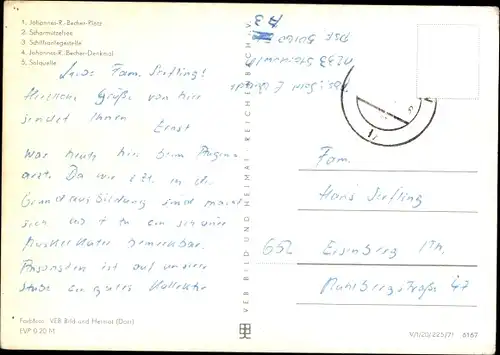 1. Johannes-R.-Becher-Platz
2. Scharmützelsee
3. Schiffsanlegestelle
4. Johannes-R.-Becher-Denkmal
5. Solquelle
Liebe Fam. Serfling!
Herzliche Grüße von hier
sendet Ihnen
Ernst
War heute hier beim Augen-
arzt. Da wir z.Zt. in der
Grundausbildung sind macht
sich ab + zu ein schwerer
Muskelkater bemerkbar.
Ansonsten ist auf unserer
Stube ein gutes Kollektiv
Farbfoto: VEB Bild und Heimat (Darr)
EVP 0,20 M
VEB BILD UND HEIMAT REICHENBACH I. V.
Fam.
Hans Serfling
652 Eisenberg Th.
Mühlbergstraße 47
V/1/20/225/71 6167